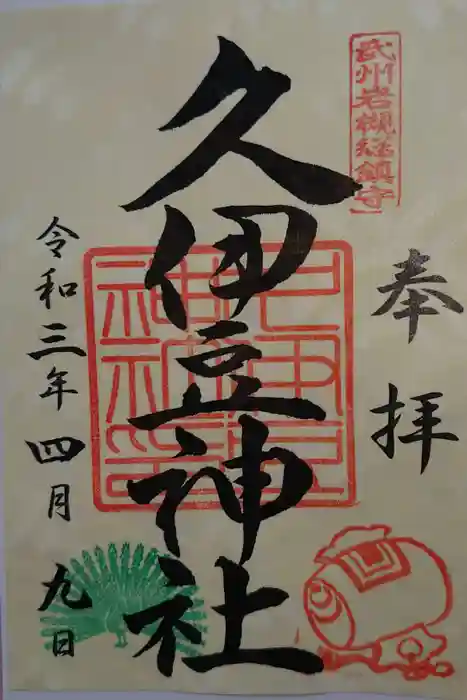 武州岩槻総鎮守
奉拝
久伊豆神社
令和三年四月九日